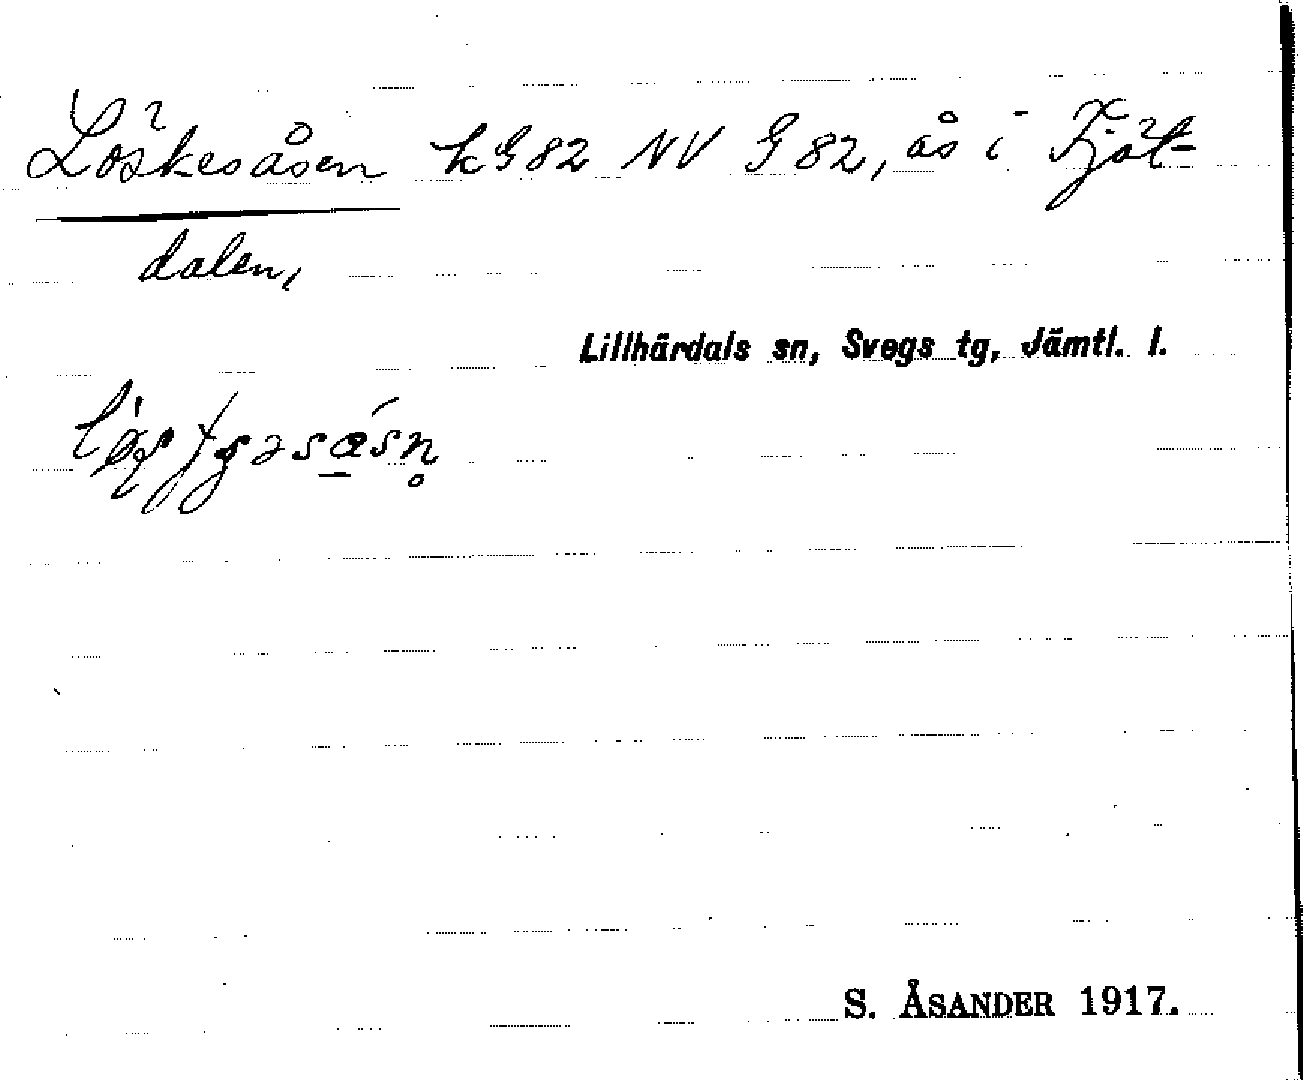 Löskesåsen kG82 NV G 82, ås i Fjät-
dalen,
Lillhärdals sn, Svegs tg, Jämtl. l.
S. ÅSANDER 1917.